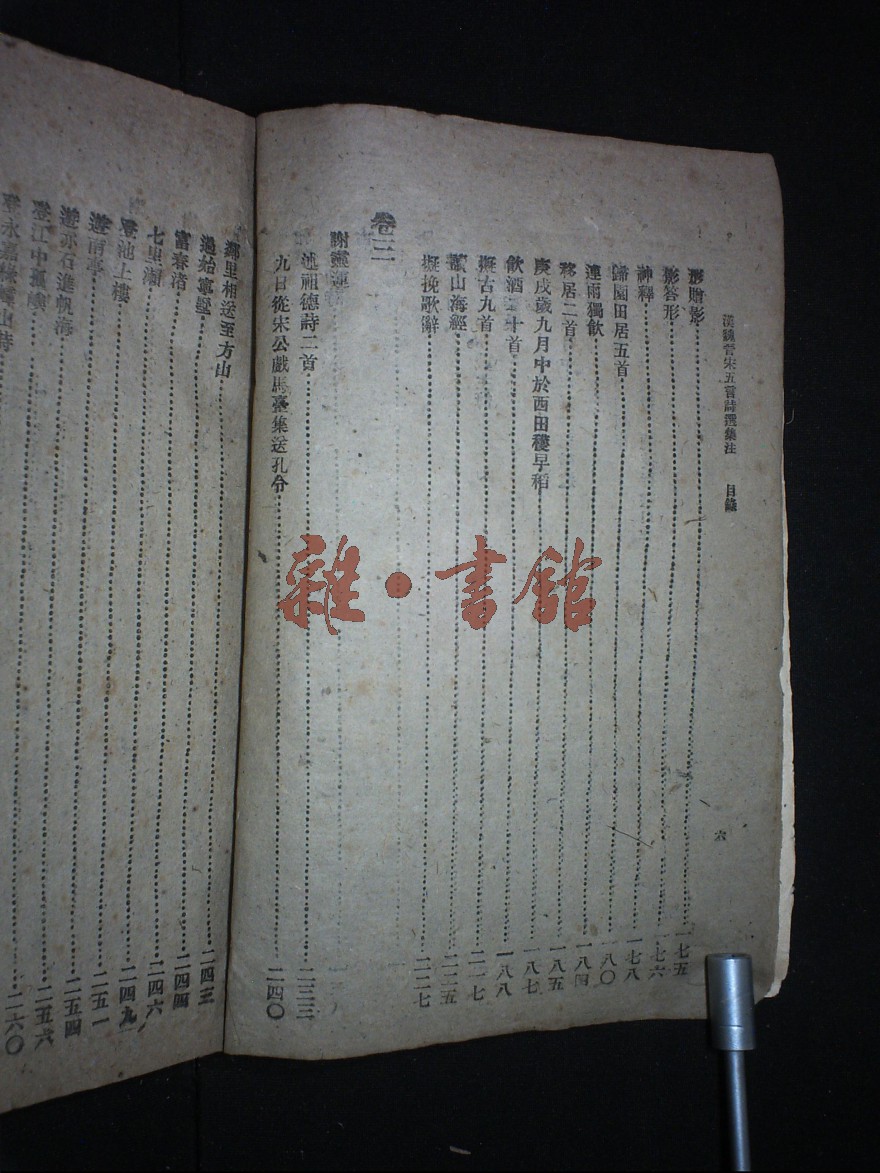 漢魏晉宋五言詩選集注 目錄
六
形贈影 一七五
影答形 一七六
神釋 一七八
歸園田居五首 一八〇
連雨獨飲 一八四
移居二首 一八五
庚戌歲九月中於西田穫早稻 一八七
飲酒二十首 一八八
擬古九首 二一七
讀山海經 二二五
擬挽歌辭 二二七
卷三
謝靈運
述祖德詩二首 二三三
九日從宋公戲馬臺集送孔令 二四〇
鄰里相送至方山
過始寧墅 二四三
富春渚 二四四
七里瀨 二四六
登池上樓 二四九
遊南亭 二五一
遊赤石進帆海 二五四
登江中孤嶼 二五六
登永嘉綠嶂山詩 二六〇
雜·書館